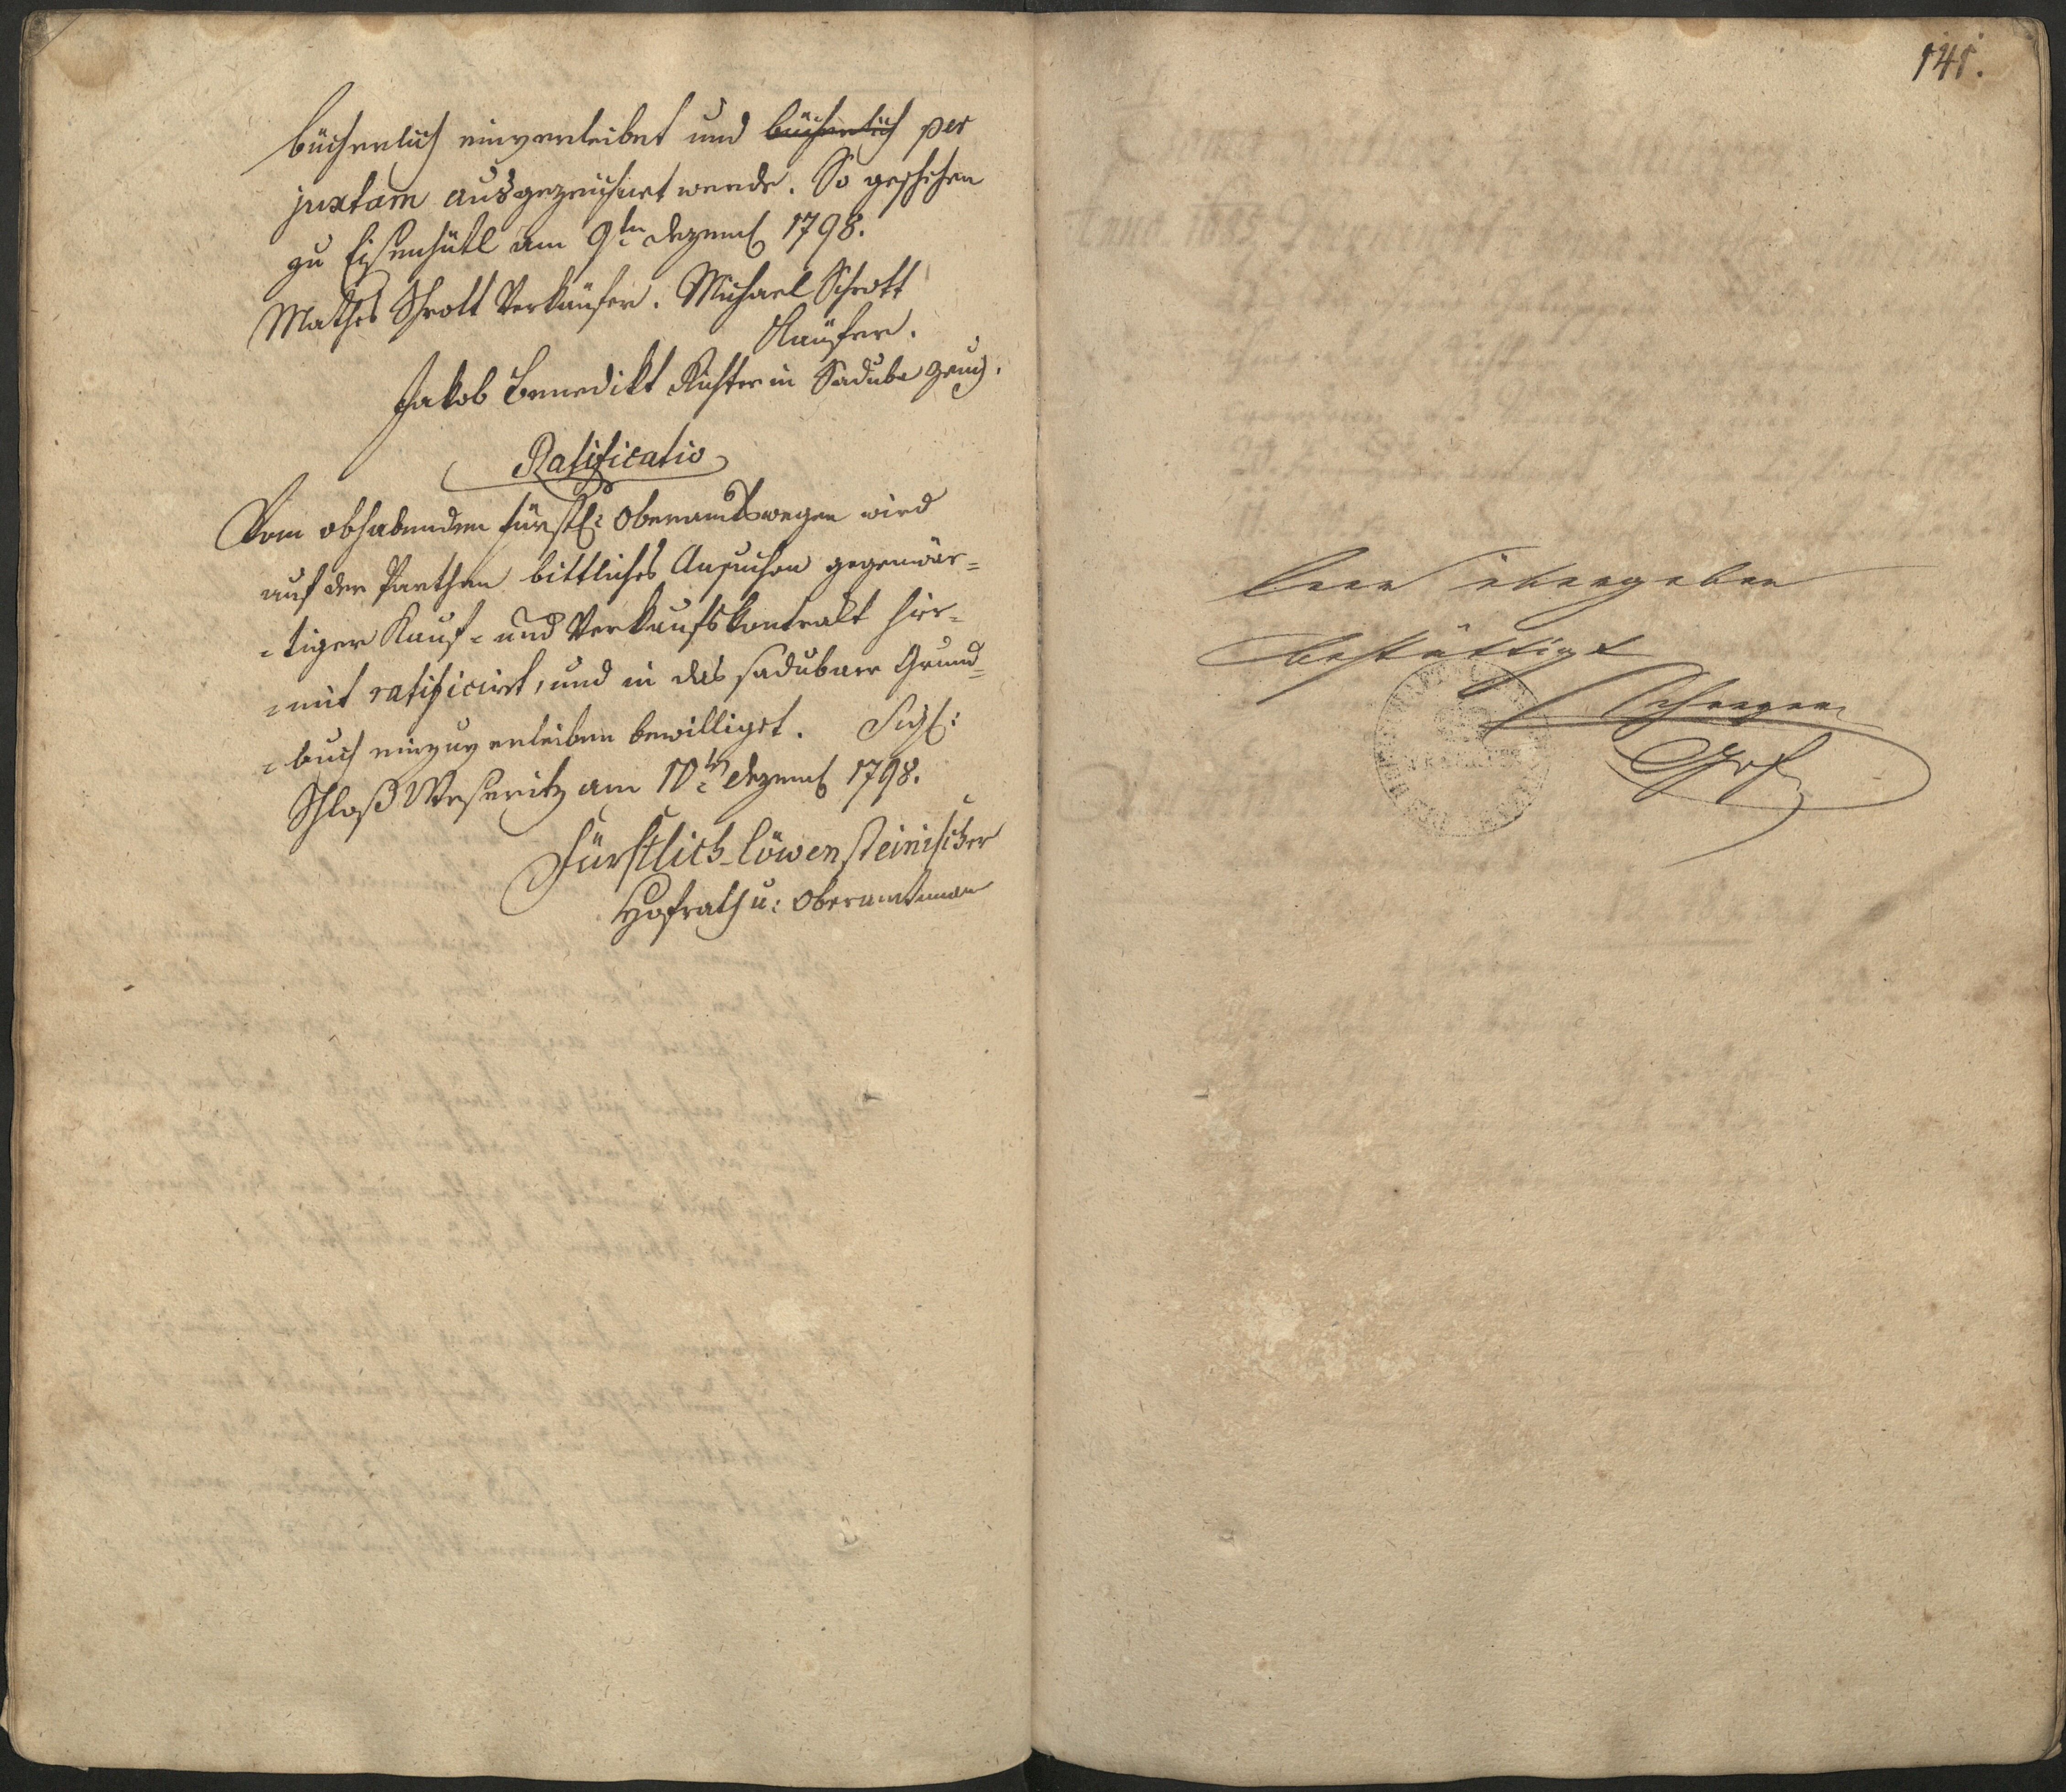 bücherlich einverleibet und bücherlich per
juxtam ausgezeichnet werde. So geschehen
zu Eisenhütl am 9ten Dezemb 1798.
Mathes Schrott Verkäufer. Michael Schrott
Käufer.
Jakob Benedikt Richter in Sadube Zeug.
Ratificatio
Vom obhabenden fürstl: Oberamtswegen wird
auf der Parthen bittliches Ansuchen gegenwär=
=tiger Kauf= und Verkaufskontrakt hier=
=mit ratificirt, und in das saduber Grund=
=buch einzuverleiben bewilliget. Sigl:
Schloß Weseritz am 10ten Dezemb 1798.
Fürstlich-Löwensteinischer
Hofrath u: Oberamtmann
141.
leer übergeben
bestättigt